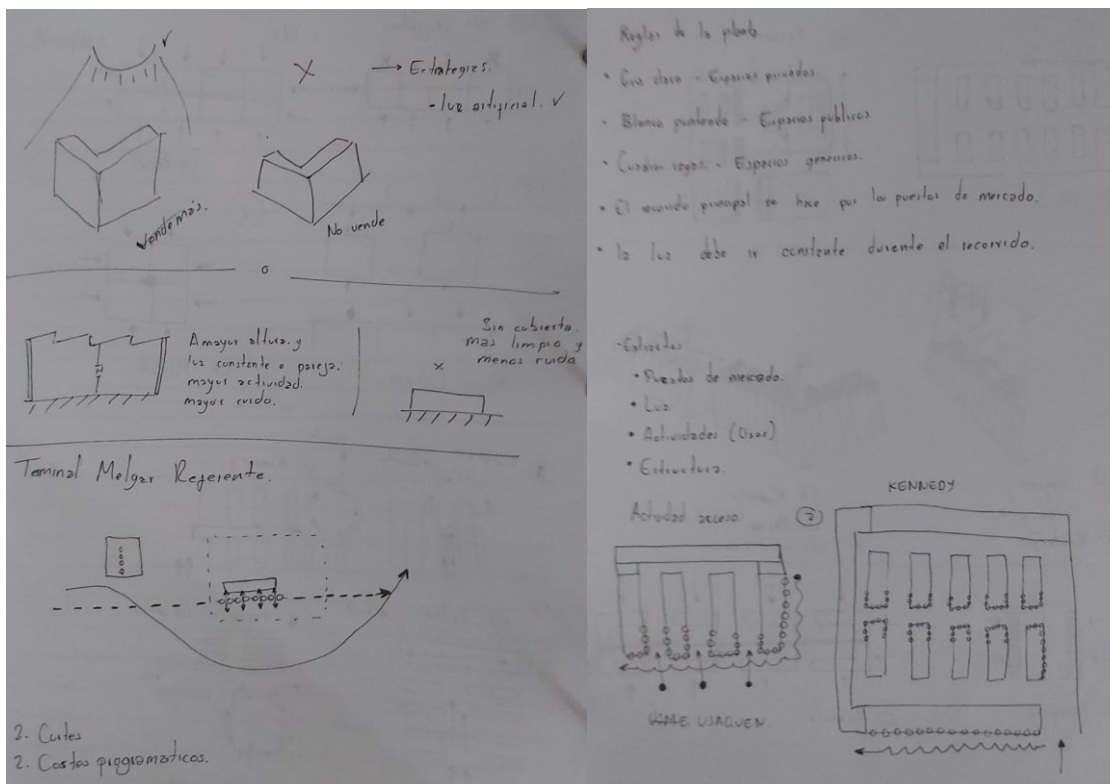 → Estrategias.
- luz artificial. ✓
Vende más.
No vende
A mayor altura. y
luz constante o pareja.
mayor actividad.
mayor ruido.
Sin cubierta.
mas limpio y
menos ruido
Teminal Melgar Referente.
2. Cortes
2. Costos programaticos.
Reglas de la
• clara - Espacios privados
• Blanco punteado - Espacios publicos
• Cuadros - Espacios genericos.
• El recorrido principal se hace por los puestos de mercado.
• la luz debe ir constante durante el recorrido.
- Extractos
• Puestos de mercado.
• Luz
• Actividades (Usos)
• Estructura.
Actividad acceso
2
KENNEDY
USAQUEN